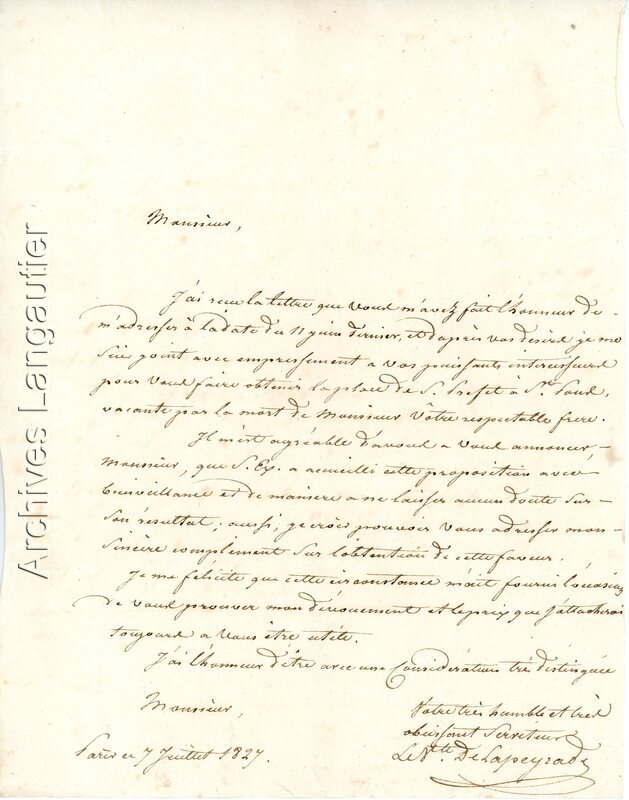 Archives Langautier
Monsieur,
J'ai reçu la lettre que vous m'avez fait l'honneur de
m'adresser à la date du 11 juin dernier, et d'après vos désirs je me
suis joint avec empressement a vos puissants intercesseurs
pour vous faire obtenir la place de S. Prefet à St. Pons,
vacante par la mort de Monsieur Vôtre respectable frere.
Il m'est agréable d'avoir a vous annoncer,
Monsieur, que S. Ex. a accueilli cette proposition avec
bienveillance et de maniere a ne laisser aucun doute sur
son résultat; aussi, je crois pouvoir vous adresser mon
sincère compliment sur l'obtention de cette faveur.
Je me félicite que cette circonstance m'ait fourni l'occasion
de vous prouver mon dévouement et le prix que j'attacherai
toujours a vous être utile.
J'ai l'honneur d'être avec une Considération très distinguée
Monsieur,
Votre très humble et très
obéissant Serviteur
Paris ce 7 Juillet 1827.
Le Vte. De Lapeyrade